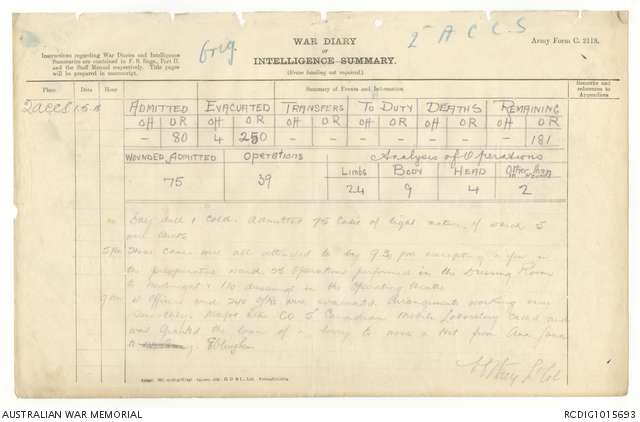 Orig.
2 A C C S
WAR DIARY
or
INTELLIGENCE SUMMARY.
(Erase heading not required.)
Army Form C. 2118.
Instructions regarding War Diaries and Intelligence
Summaries are contained in F. S. Regs., Part II.
and the Staff Manual respectively. Title pages
will be prepared in manuscript.
Place Date Hour Summary of Events and Information Remarks and references to Appendices
2 ACCS 1.5.18
ADMITTED EVACUATED TRANSFERS TO DUTY DEATHS REMAINING
Off OR Off OR Off OR Off OR Off OR Off OR
- 80 4 250 - - - - - - - 181
WOUNDED ADMITTED Operations Analysis of Operations
75 39 Limbs Body Head Other than wounds
24 9 4 2
Day dull & cold. Admitted 75 cases of light nature, of which 5
were
These cases were all attended to by 9.30 pm excepting a few in
the preoperative ward. 38 Operations performed in the Dressing Room
to midnight & 110 dressings in the Operating theatre
4 Officers and 240 O/Rs were evacuated. Arrangements working very
smoothly. Major CO 5 Canadian Mobile Laboratory called and
was granted the loan of a lorry to move a Hut from Ana Jana
to Eblinghem
Lt Col
AUSTRALIAN WAR MEMORIAL
RCDIG1015693